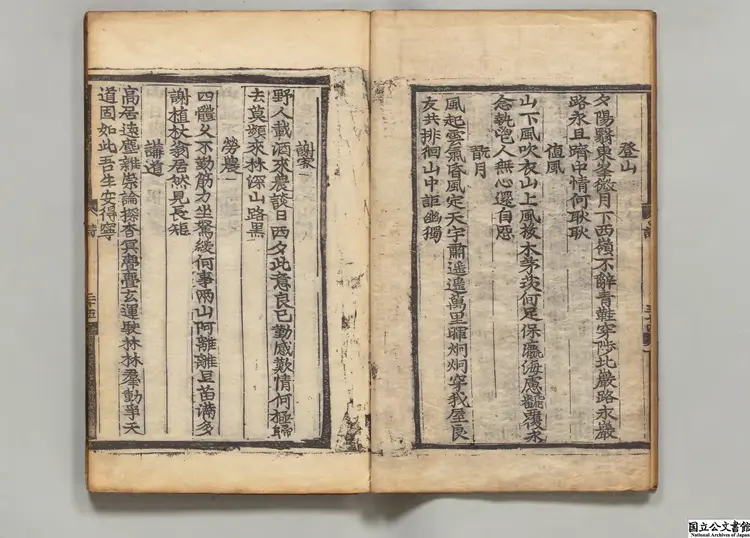 登山
夕陽翳東峯微月下西嶺不辭青鞋穿陟此巖路永巖
路永且躋中情何耿耿
値風
山下風吹衣山上風拔木茅茨何足保瀛海慮飜覆永
念執咆人無心還自恧
翫月
風起雲氣昏風定天宇肅遥遥萬里暉炯炯穿我屋良
友共排徊山中詎幽獨
謝客
野人載酒來農談日西夕此意良已勤感歎情何極歸
去莫頻來林深山路黑
勞農
四體久不勤筋力坐駑緩何事兩山阿離離豆苗滿多
謝植杖翁居然見長短
講道
高居遠塵雜崇論探杳冥亹亹玄運駛林林羣動爭天
道固如此吾生安得寧
詩
二十五
国立公文書館
National Archives of Japan